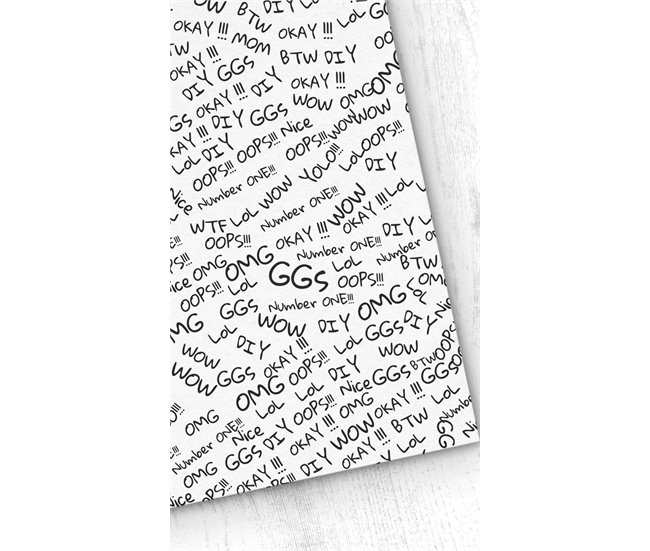 WOW BTW DIY LOL
OKAY !!! MOM BTW DIY
OKAY !!! DIY GGs OKAY !!! OOPS!!!
OKAY !!! DIY OMG OMG
GGs OKAY !!! DIY GGs WOW WOW
LoL DIY OOPS!!! Nice OOPS!!! WOW OOPS!!!
OOPS!!! WOW YOLO!!! LoL DIY
Nice Number ONE!!! LoL
WTF LoL WOW Number ONE!!! WOW
OOPS!!! OKAY !!! OKAY !!! LoL DIY
Nice OMG OMG Number ONE!!! Number ONE!!! BTW
OOPS!!! GGs LoL OOPS!!! OMG
OMG GGs Number ONE!!! OMG LoL
LoL WOW DIY LoL GGs DIY Nice
WOW DIY OKAY !!! OOPS!!! WOW BTW OOPS!!!
WOW GGs OMG LoL LoL Nice GGs OKAY !!! GGs
OMG LoL OOPS!!! OMG OKAY !!! BTW
Number ONE!!! Nice DIY OKAY !!! WOW LoL
OMG GGs OKAY !!! DIY OKAY !!!
Nice OOPS!!!